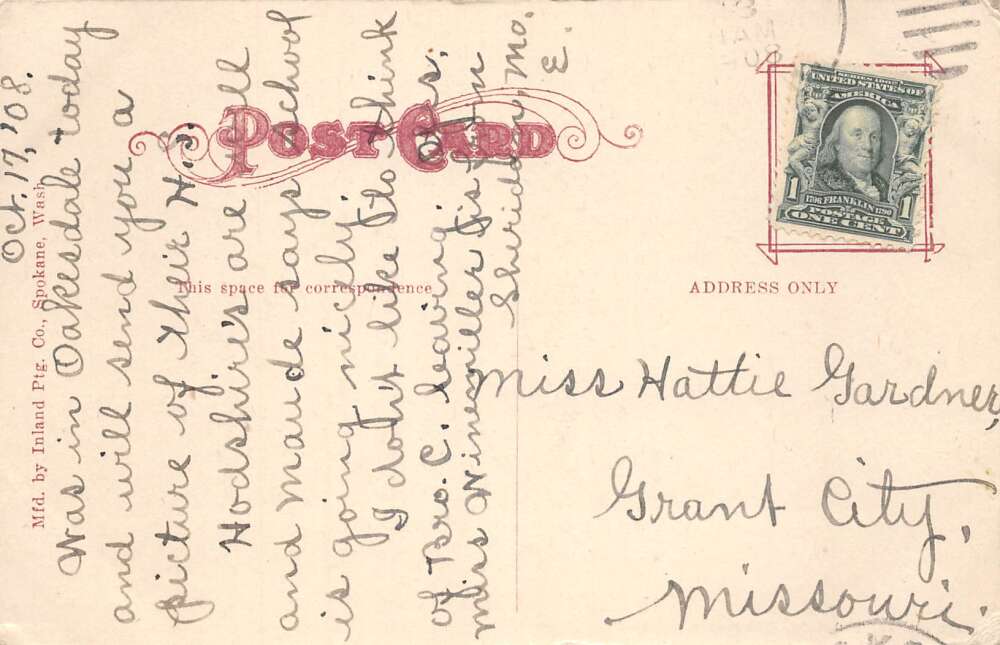 Oct. 17, '08.
Was in Oakesdale today
and will send you a
picture of their H.S.
Hodshire's are well
and Maude says school
is going nicely.
I don't like Flo think
of Bro. C. leaving
Miss Winemiller
Sheridan, Mo.
E.
POST CARD
This space for correspondence
ADDRESS ONLY
Mfd. by Inland Ptg. Co., Spokane, Wash.
SERIES 1902
UNITED STATES OF
AMERICA
1706 FRANKLIN 1790
1 POSTAGE 1
ONE CENT
Miss Hattie Gardner,
Grant City,
Missouri.